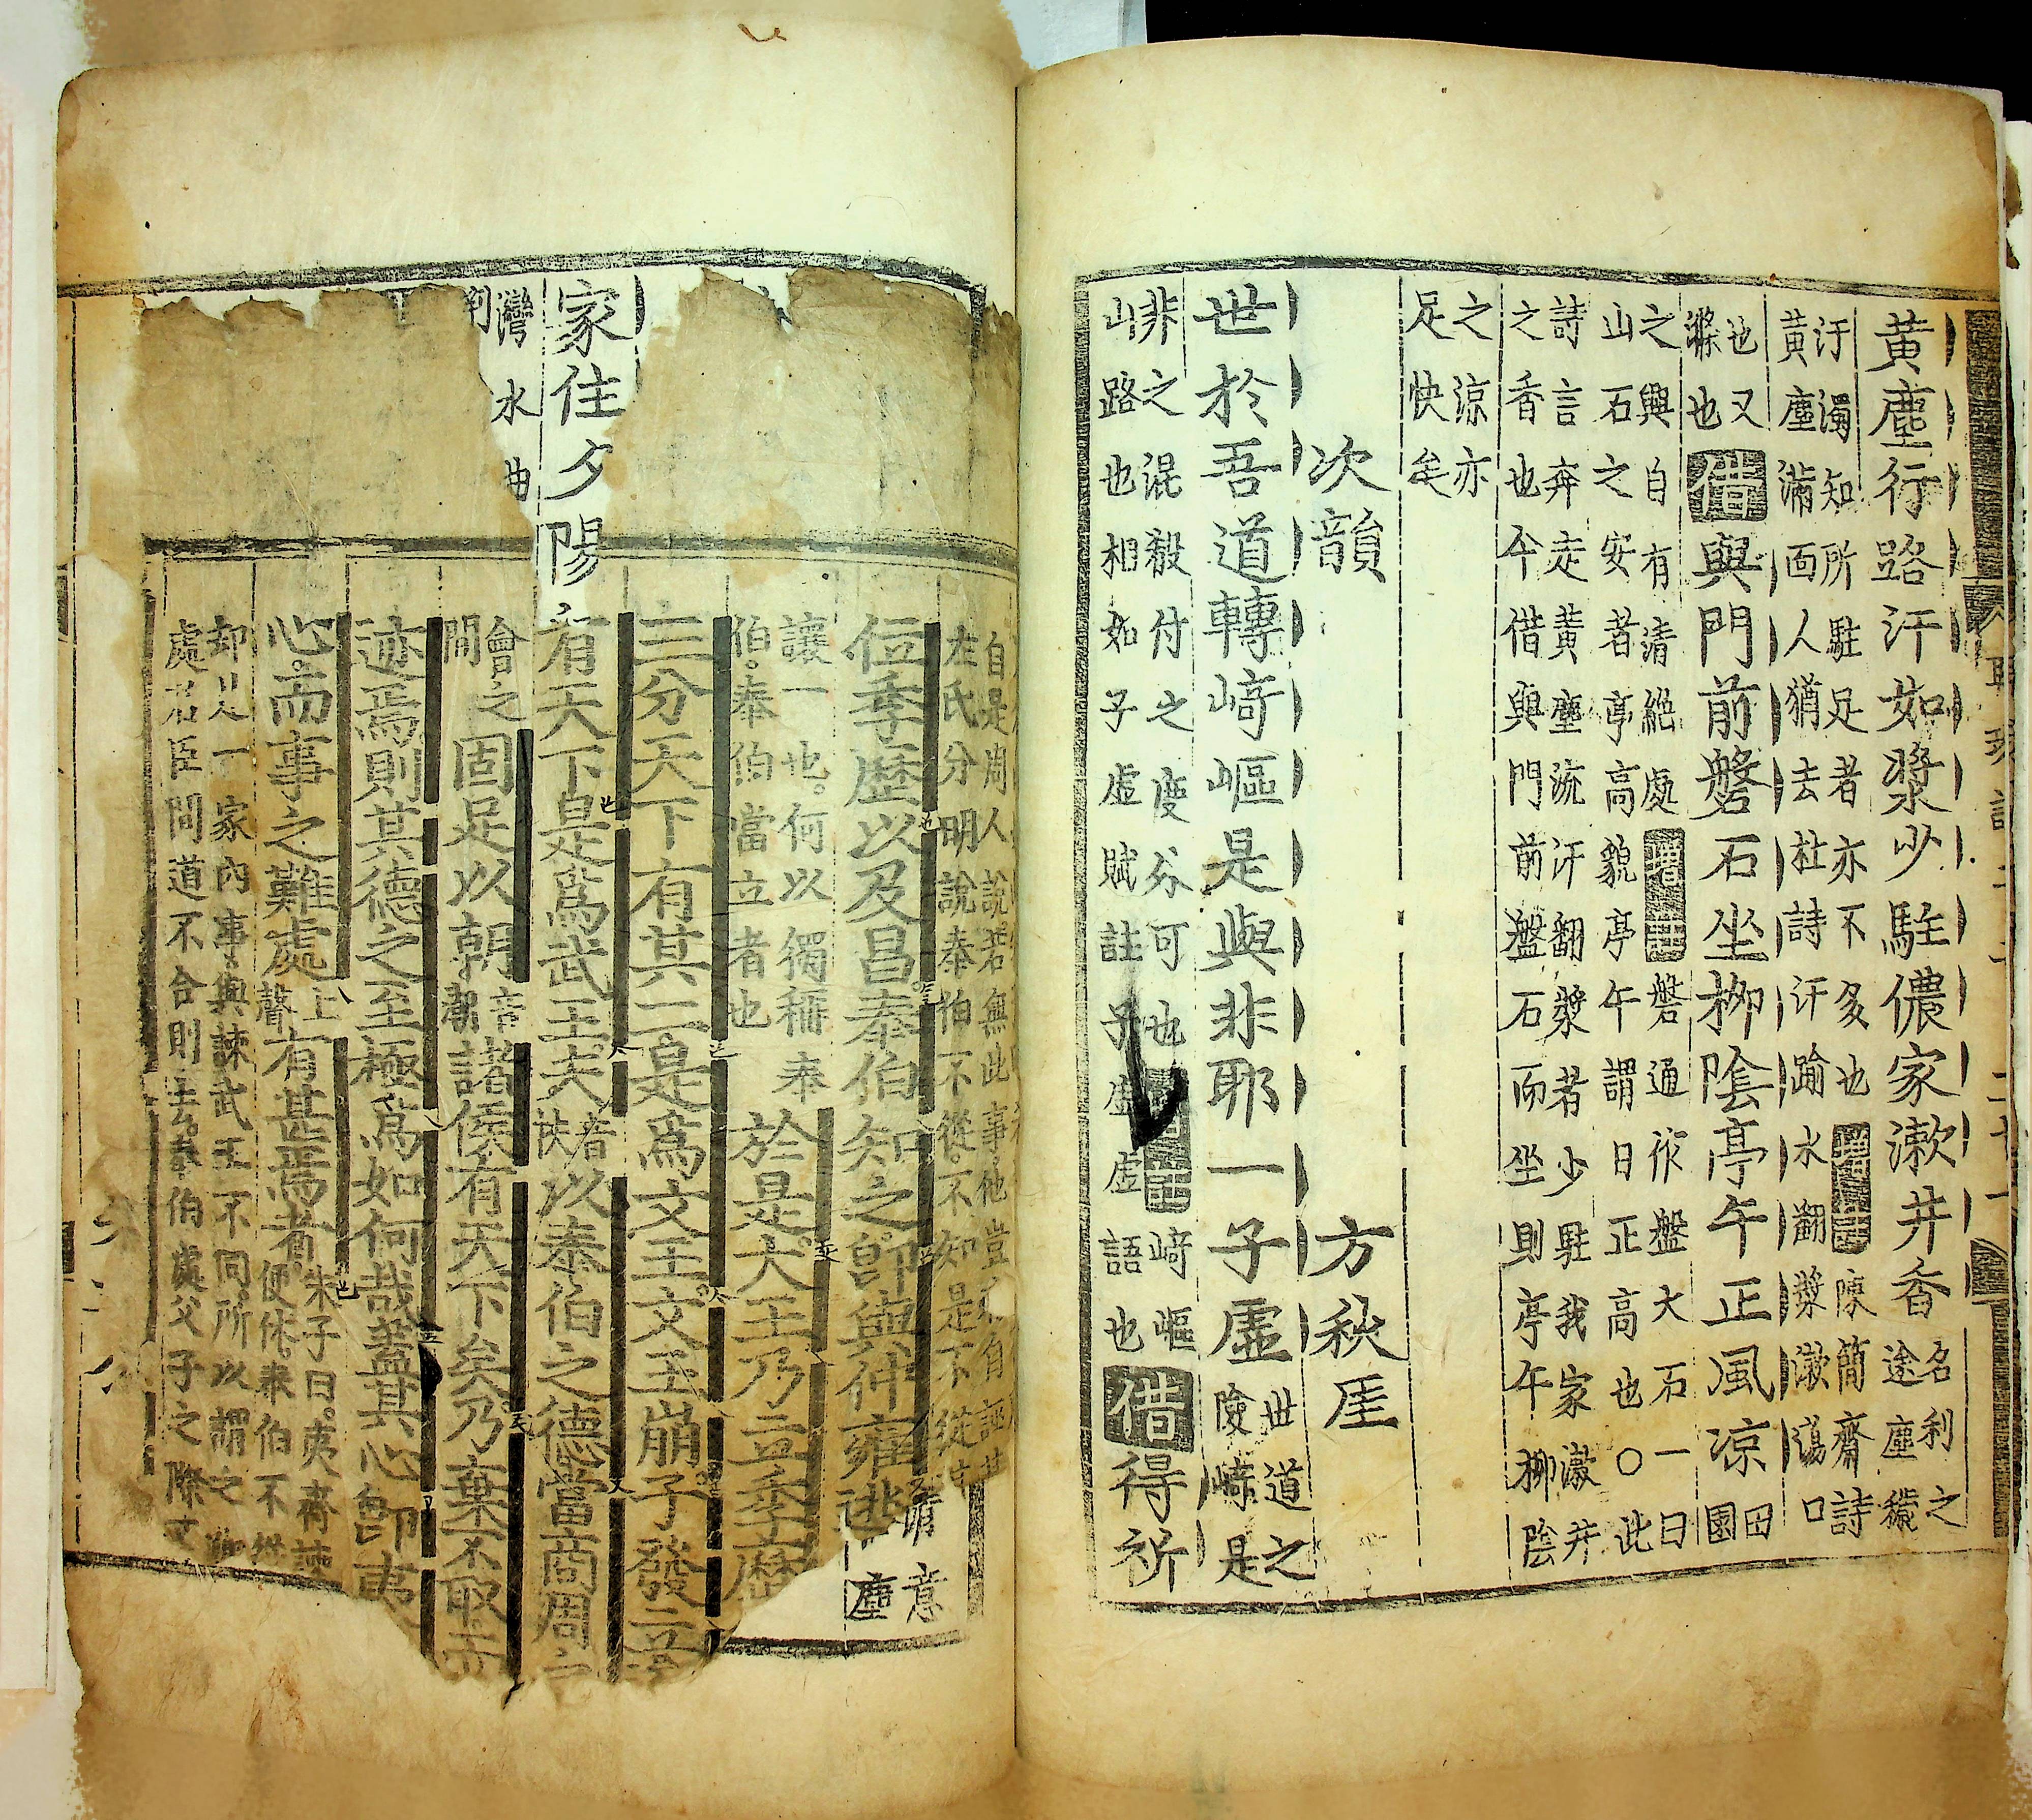 黄塵行路汗如漿少駐儂家漱井香名利之途塵穢
汙濁知所駐足者亦不多也增註陳簡齋詩
黄塵滿面人猶去杜詩汗踰水翻漿漱蕩口
也又
滌也借與門前磐石坐柳陰亭午正風凉田園
之興自有清絶處增註磐通作盤大石一曰
山石之安者亭高貌亭午謂日正高也○此
詩言奔走黄塵流汗翻漿若少駐我家漱井
之香也今借與門前盤石而坐則亭午柳陰
之涼亦
足快矣
次韻 方秋厓
世於吾道轉﨑嶇是與非耶一子虛世道之險﨑是
非之混殽付之度外可也增註﨑嶇
山路也相如子虛賦註子虛虛語也借得祈
家住夕陽
灣水曲
清意
塵
自是周人說若無此事他豈自誣其
左氏分明說泰伯不從不知是不從甚
位季歷以及昌泰伯知之即與仲雍逃
讓一也何以獨稱泰
伯泰伯當立者也於是大王乃立季歷
三分天下有其二是爲文王文王崩子發立
有天下是爲武王夫音扶以泰伯之德當商周之
會之
間固足以朝音潮諸侯有天下矣乃棄不取而
迹焉則其德之至極爲如何哉蓋其心卽夷
心而事之難處上聲有甚焉者朱子曰夷齊諫
便休泰伯不從
却是一家內事與諫武王不同所以謂之
處君臣間道不合則去泰伯處父子之際